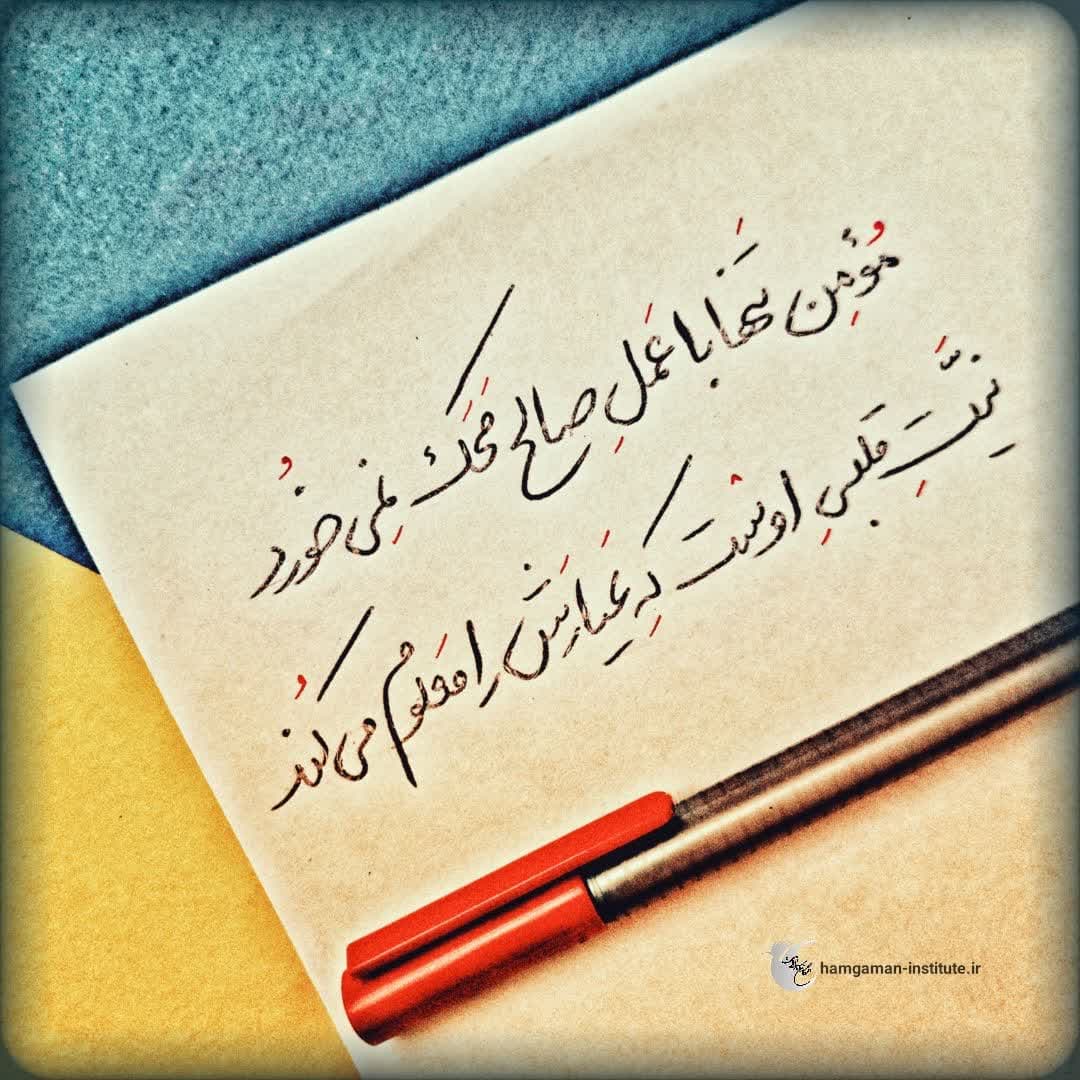 مُؤمِن تَنها با عَمَلِ صالح مَحَک نِمی خُورد
نیَّتِ قلبیِ اوست که عَیارَش را مَعلوم می کُند
hamgaman-institute.ir